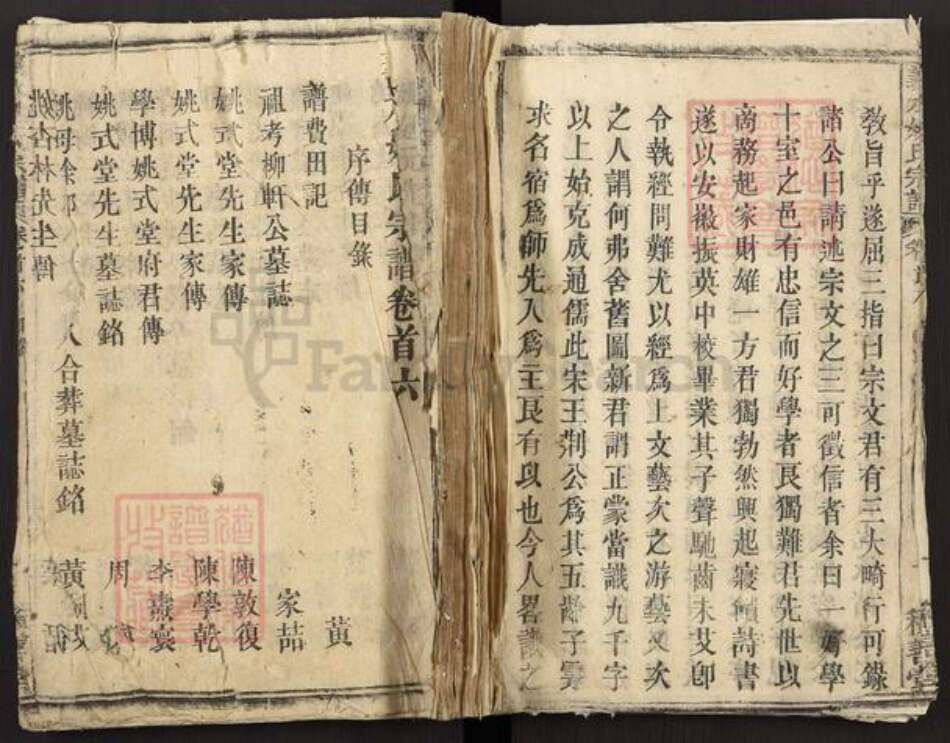 教旨乎遂屈三指曰宗文君有三大畸行可錄
諸公曰請述宗文之三可徵信者余曰一好學
十室之邑有忠信而好學者艮獨難君先世以
商務起家財雄一方君獨勃然興起寢饋詩書
遂以安徽振英中校畢業其子聲馳齒未艾卽
令執經問難尤以經爲上文藝次之游藝又次
之人謂何弗舍舊圖新君謂正蒙當識九千字
以上始克成通儒此宋王荆公爲其五齡子雱
求名宿爲師先入爲王艮有以也今人畧識之
姚氏宗譜卷首六
序傳目錄
譜費田記 黃
祖考柳軒公墓誌 家喆
姚式堂先生家傳 陳敦復
姚式堂先生家傳 陳學乾
學博姚式堂府君傳 李
姚式堂先生墓誌銘 周
姚母余 人合葬墓誌銘 黃
姚杏林先生
姚氏宗譜
積善堂
FamilySearch